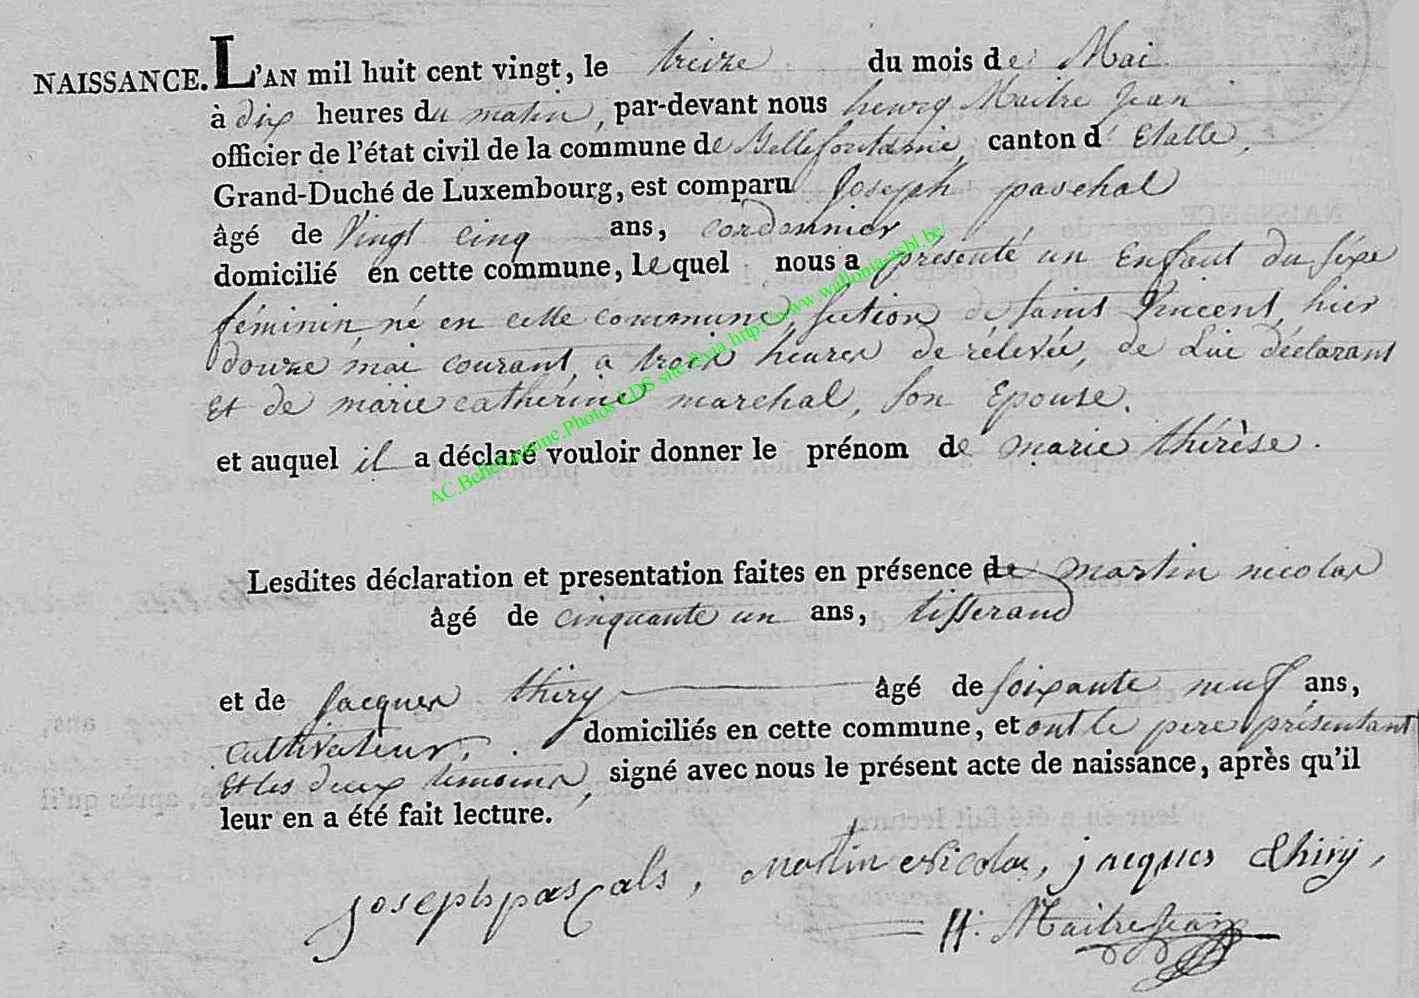 NAISSANCE. L'AN mil huit cent vingt, le treize du mois de Mai
à dix heures du matin, par-devant nous henry Maitre Jean
officier de l'état civil de la commune de Bellefontaine, canton d' Etalle,
Grand-Duché de Luxembourg, est comparu Joseph paschal
âgé de Vingt cinq ans, cordonnier
domicilié en cette commune, lequel nous a présenté un Enfant du sexe
féminin né en cette commune, section de saint Vincent, hier
douze mai courant, a trois heures de rélevée, de Lui déclarant
Et de marie catherine marchal, son Epouse.
et auquel il a déclaré vouloir donner le prénom de marie thérèse.
Lesdites déclaration et presentation faites en présence de martin nicolas
âgé de cinquante un ans, tisserand
et de Jacques thiry âgé de soixante neuf ans,
cultivateur, domiciliés en cette commune, et ont le pere présentant
Et les deux temoins, signé avec nous le présent acte de naissance, après qu'il
leur en a été fait lecture.
joseph pascals, martin Nicolas, jacques thiry,
H. MaitreJean